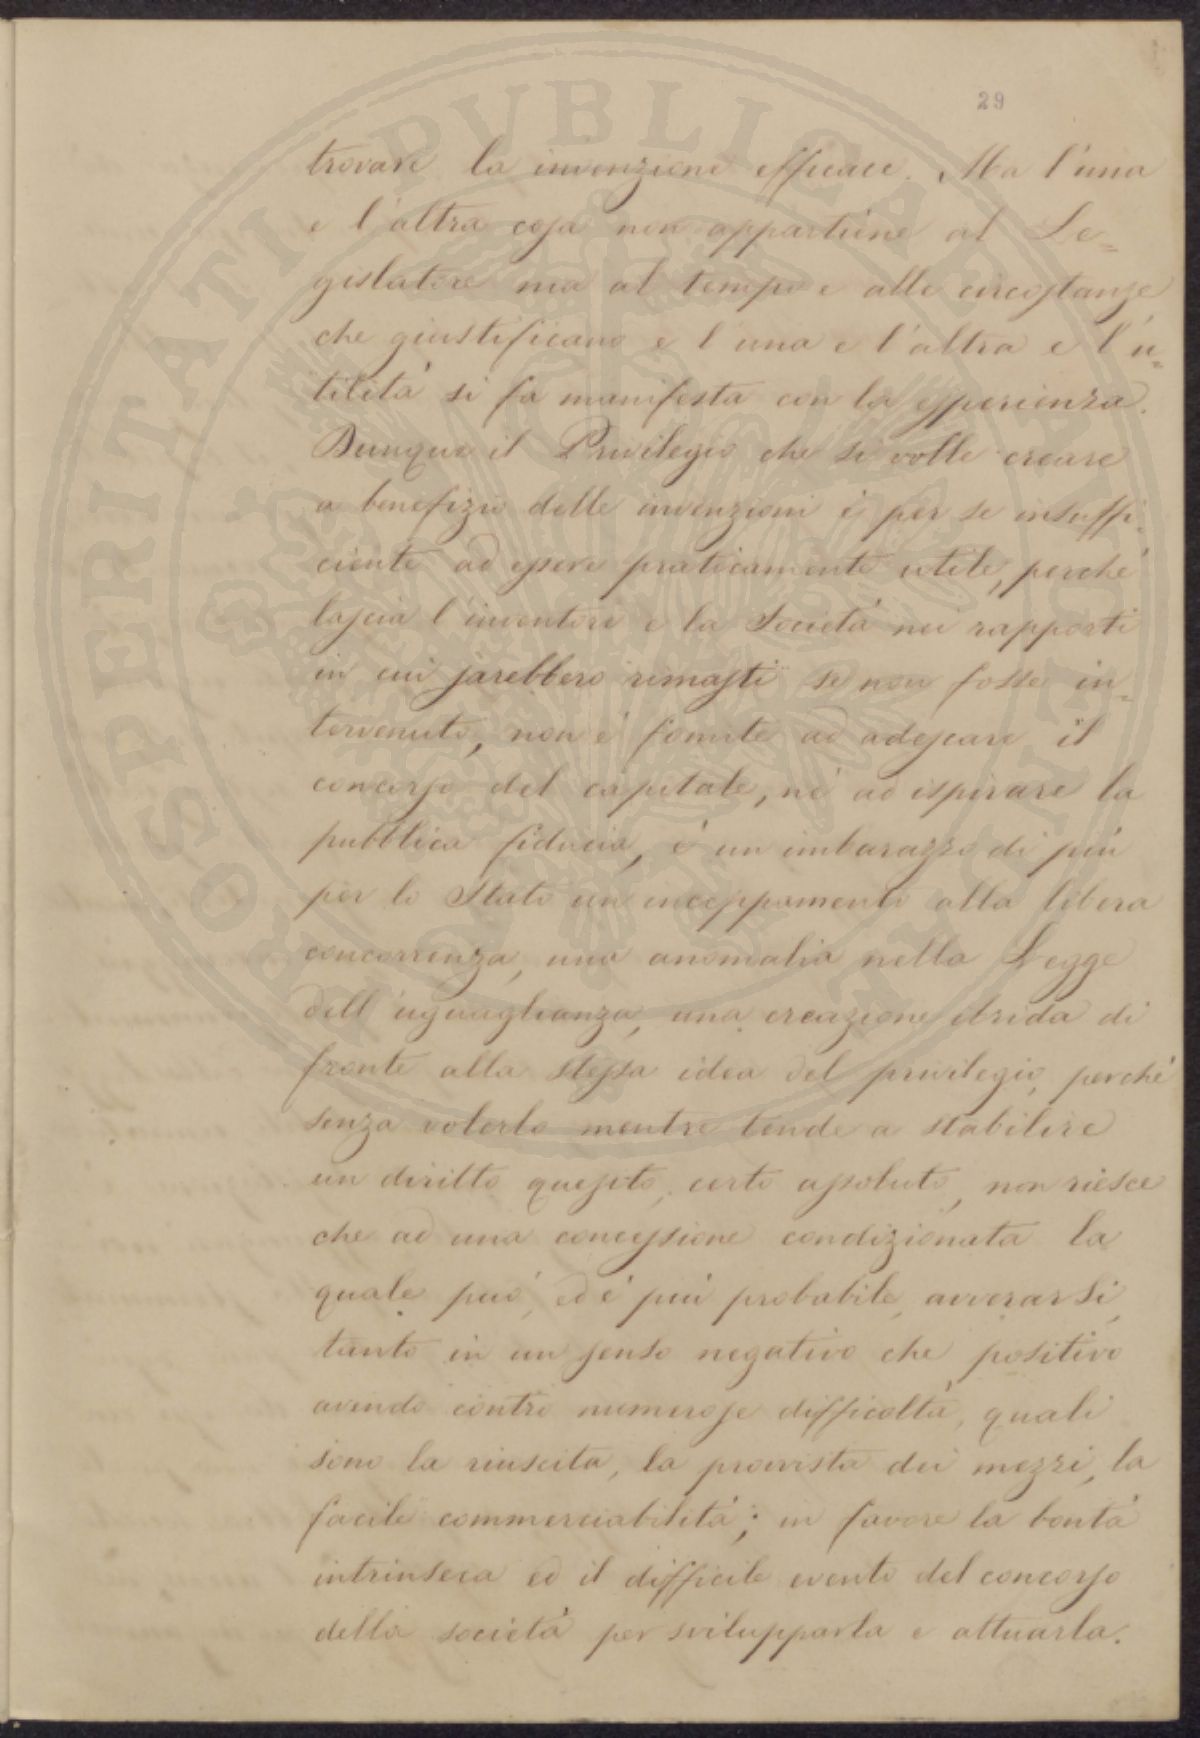 29
trovare la invenzione efficace. Ma l'una
e l'altra cosa non appartiene al Le=
gislatore ma al tempo e alle circostanze
che giustificano e l'una e l'altra e l'u=
tilità si fa manifesta con la esperienza.
Dunque il Privilegio che si volle creare
a benefizio delle invenzioni è per se insuffi=
ciente ad essere praticamente utile, perché
lascia l'inventore e la Società nei rapporti
in cui sarebbero rimasti se non fosse in=
tervenuto, non è fomite ad adescare il
concorso del capitale, né ad ispirare la
pubblica fiducia, è un imbarazzo di più
per lo Stato un inceppamento alla libera
concorrenza, una anomalia nella Legge
dell'uguaglianza, una creazione ibrida di
fronte alla stessa idea del privilegio, perché
senza volerlo mentre tende a stabilire
un diritto quesito, certo assoluto, non riesce
che ad una concessione condizionata la
quale può, ed è più probabile, avverarsi,
tanto in un senso negativo che positivo
avendo contro numerose difficoltà, quali
sono la riuscita, la provvista dei mezzi, la
facile commerciabilità; in favore la bontà
intrinseca ed il difficile evento del concorso
della società per svilupparla e attuarla.
PROSPERITATI PVBLICAE